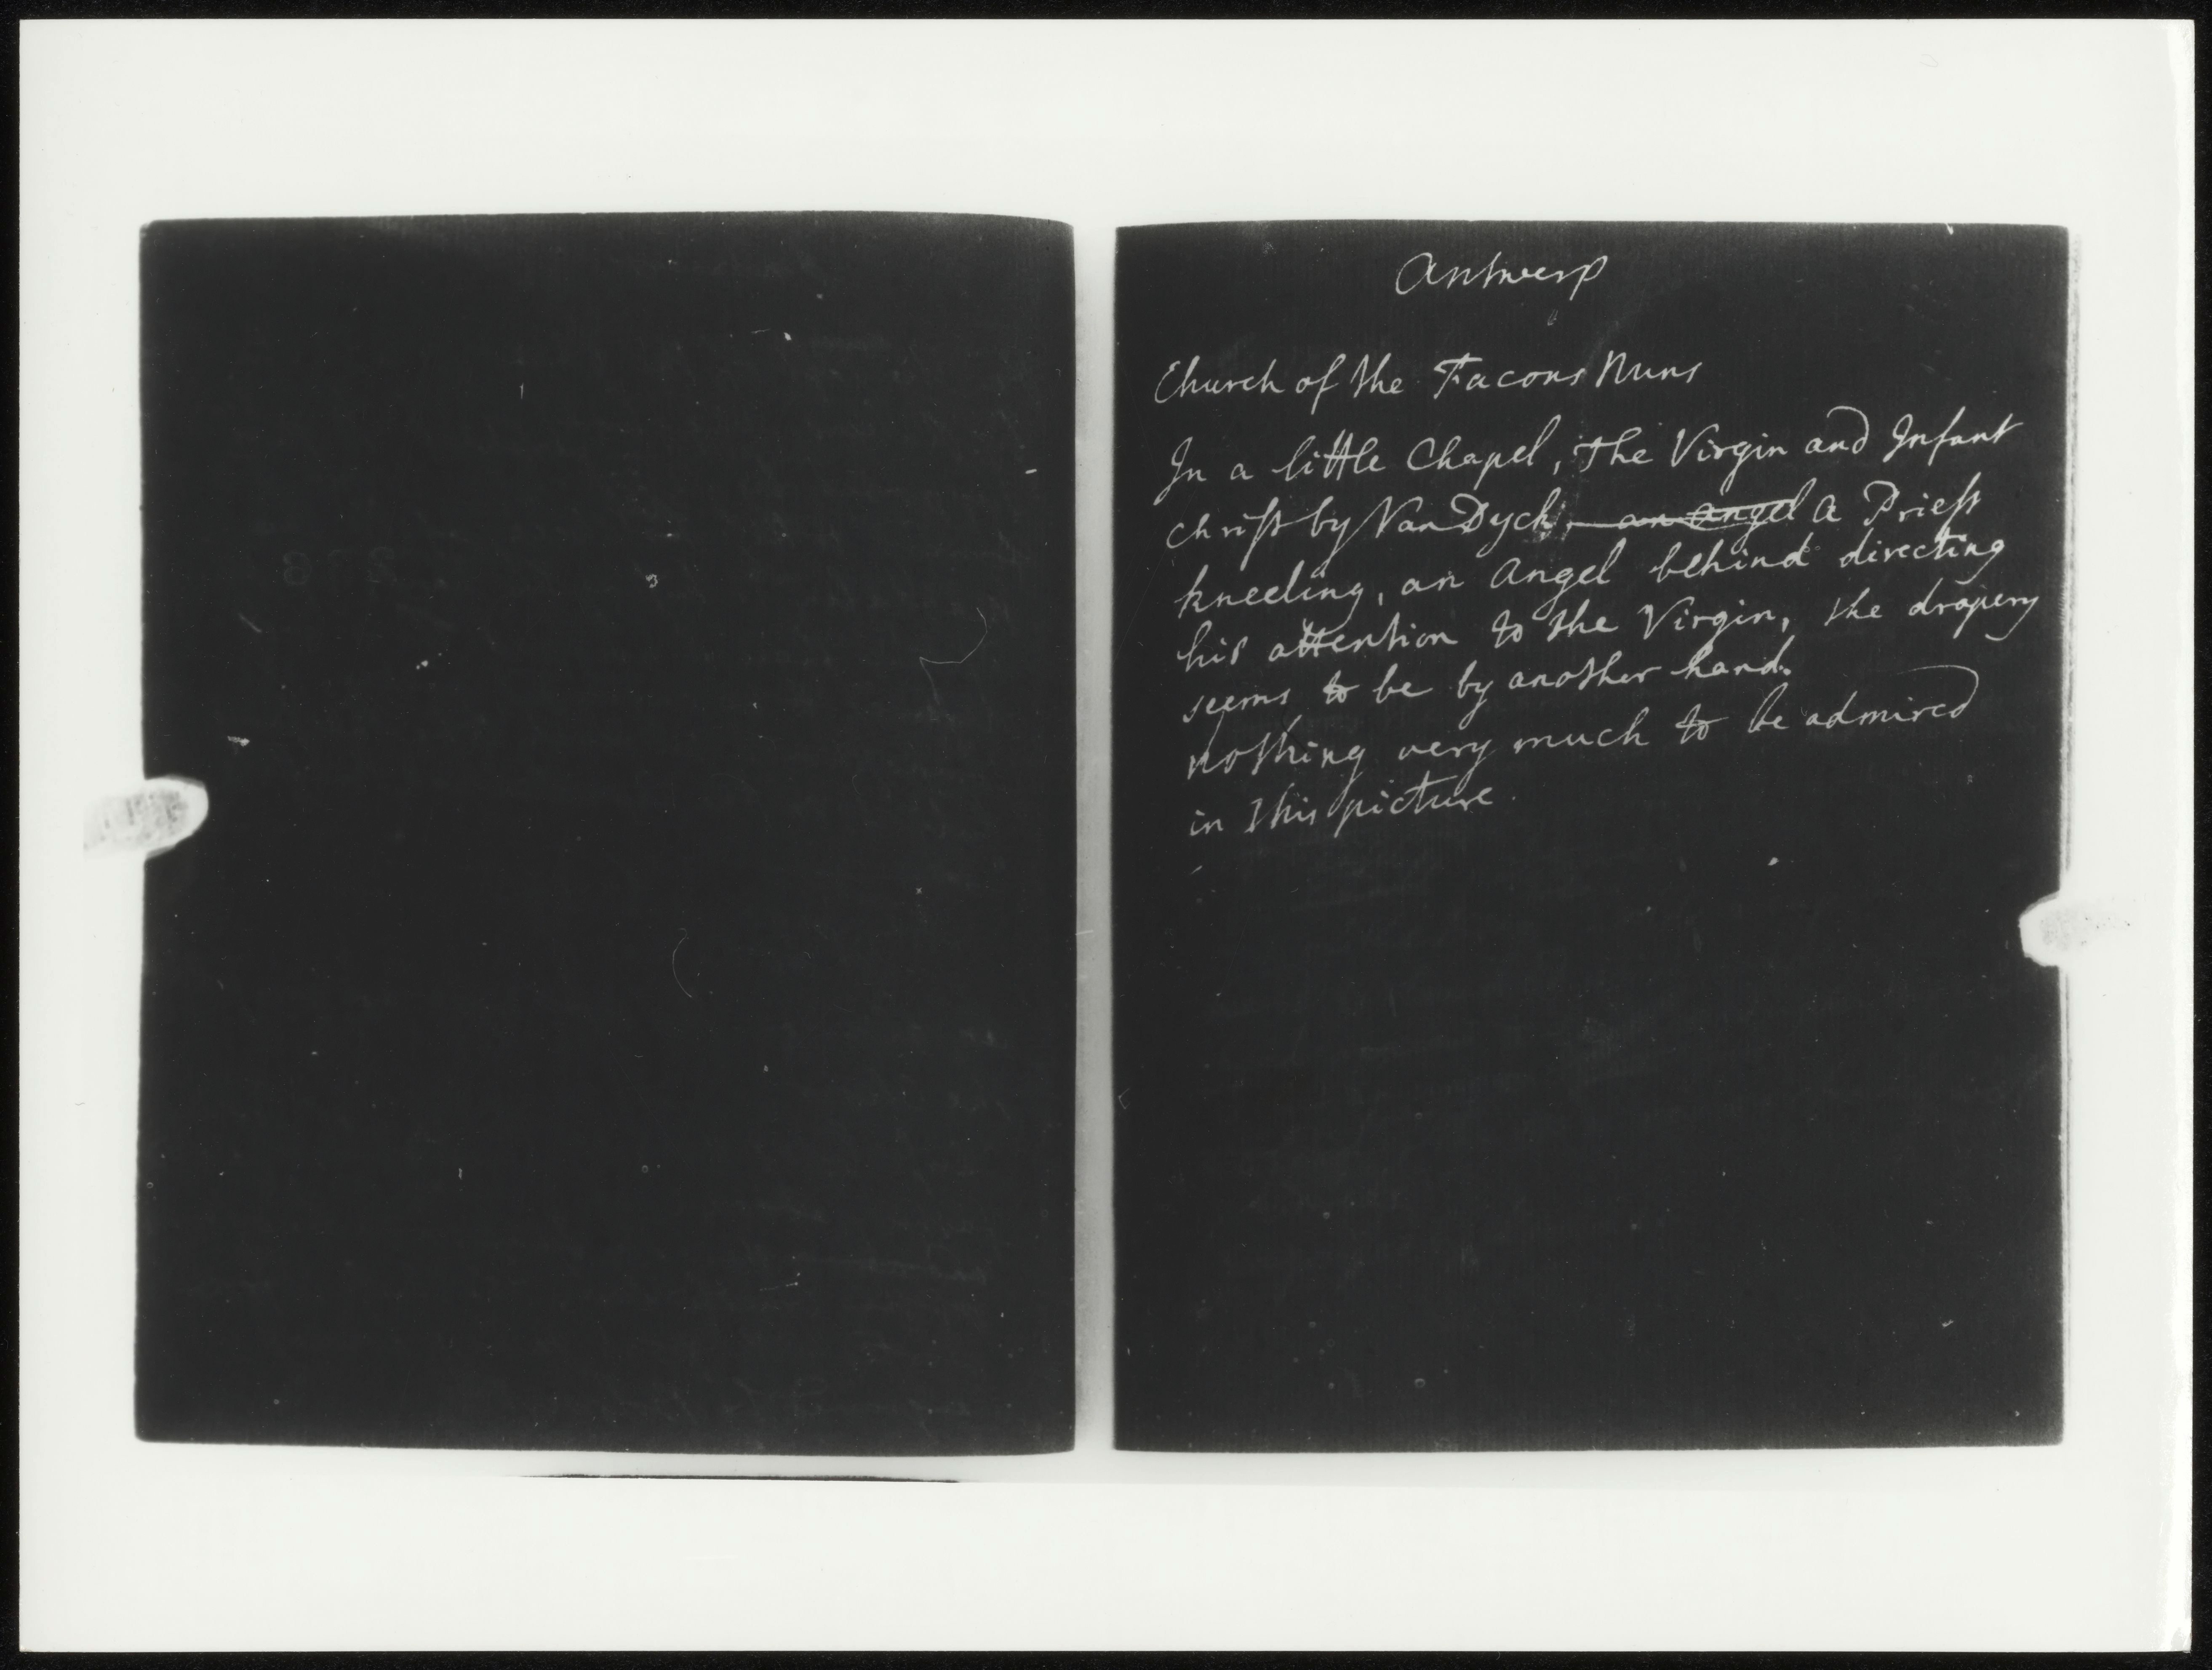 Antwerp
Church of the Facons Nuns
In a little Chapel, The Virgin and Infant
christ by VanDyck, an angel a Priest
kneeling, an Angel behind directing
his attention to the Virgin, the drapery
seems to be by another hand.
nothing very much to be admired
in this picture.